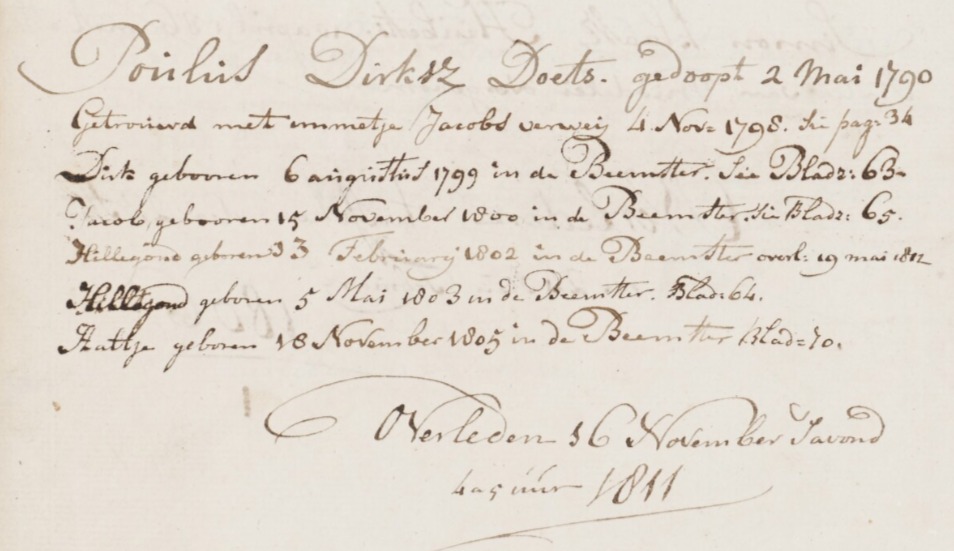 Poulus Dirksz Doets. gedoopt 2 Mai 1790
Getrouwd met emmetje Jacobs verweij 4 Nov= 1798. Sie pag= 34
Dirk gebooren 6 augustus 1799 in de Beemster. Sie Bladz: 63=
Jacob, gebooren 15 November 1800 in de Beemster. Sie Bladz: 65.
Hillegond geboren 33 Februarij 1802 in de Beemster overl: 19 mai 1802
Hillegond geboren 5 Mai 1803 in de Beemster. Blad: 64.
geboren 18 November 1805 in de Beemster Blad= 70.
Overleden 16 November Savond
4 a 5 úúr 1811